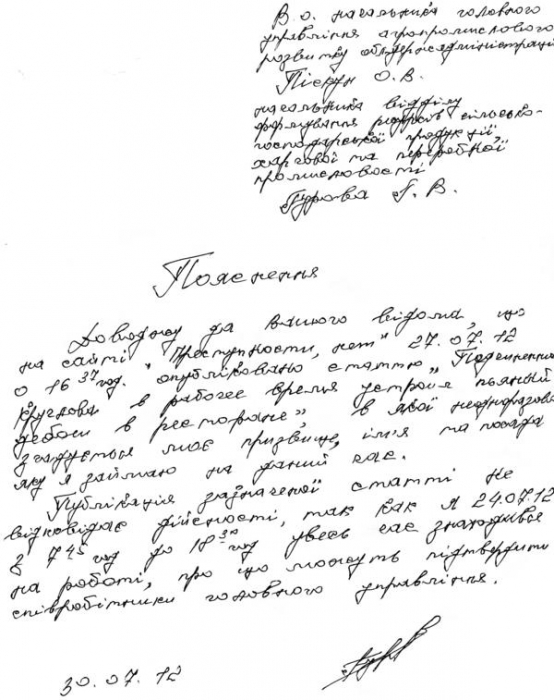 В.о. начальника головного
управління агропромислового
розвитку облдержадміністрації
Піскун О.В.
начальника відділу
формування ресурсів сільсько-
господарської продукції,
харчової та переробної
промисловості
Гурова Г.В.
Пояснення
Доводжу до Вашого відома, що
на сайті "Преступности, нет" 27.07.12
о 16 37 год. опубліковано статтю "Подчиненный
Круглова в рабочее время устроил пьяный
дебош в ресторане", в якої неодноразово
згадується моє призвище, ім'я та посада
яку я займаю на даний час.
Публікація зазначеної статті не
відповідає дійсності, так как я 24.07.12
з 7 45 год до 18 30 год увесь час знаходився
на роботі, про що можуть підтвердити
співробітники головного управління.
30.07.12